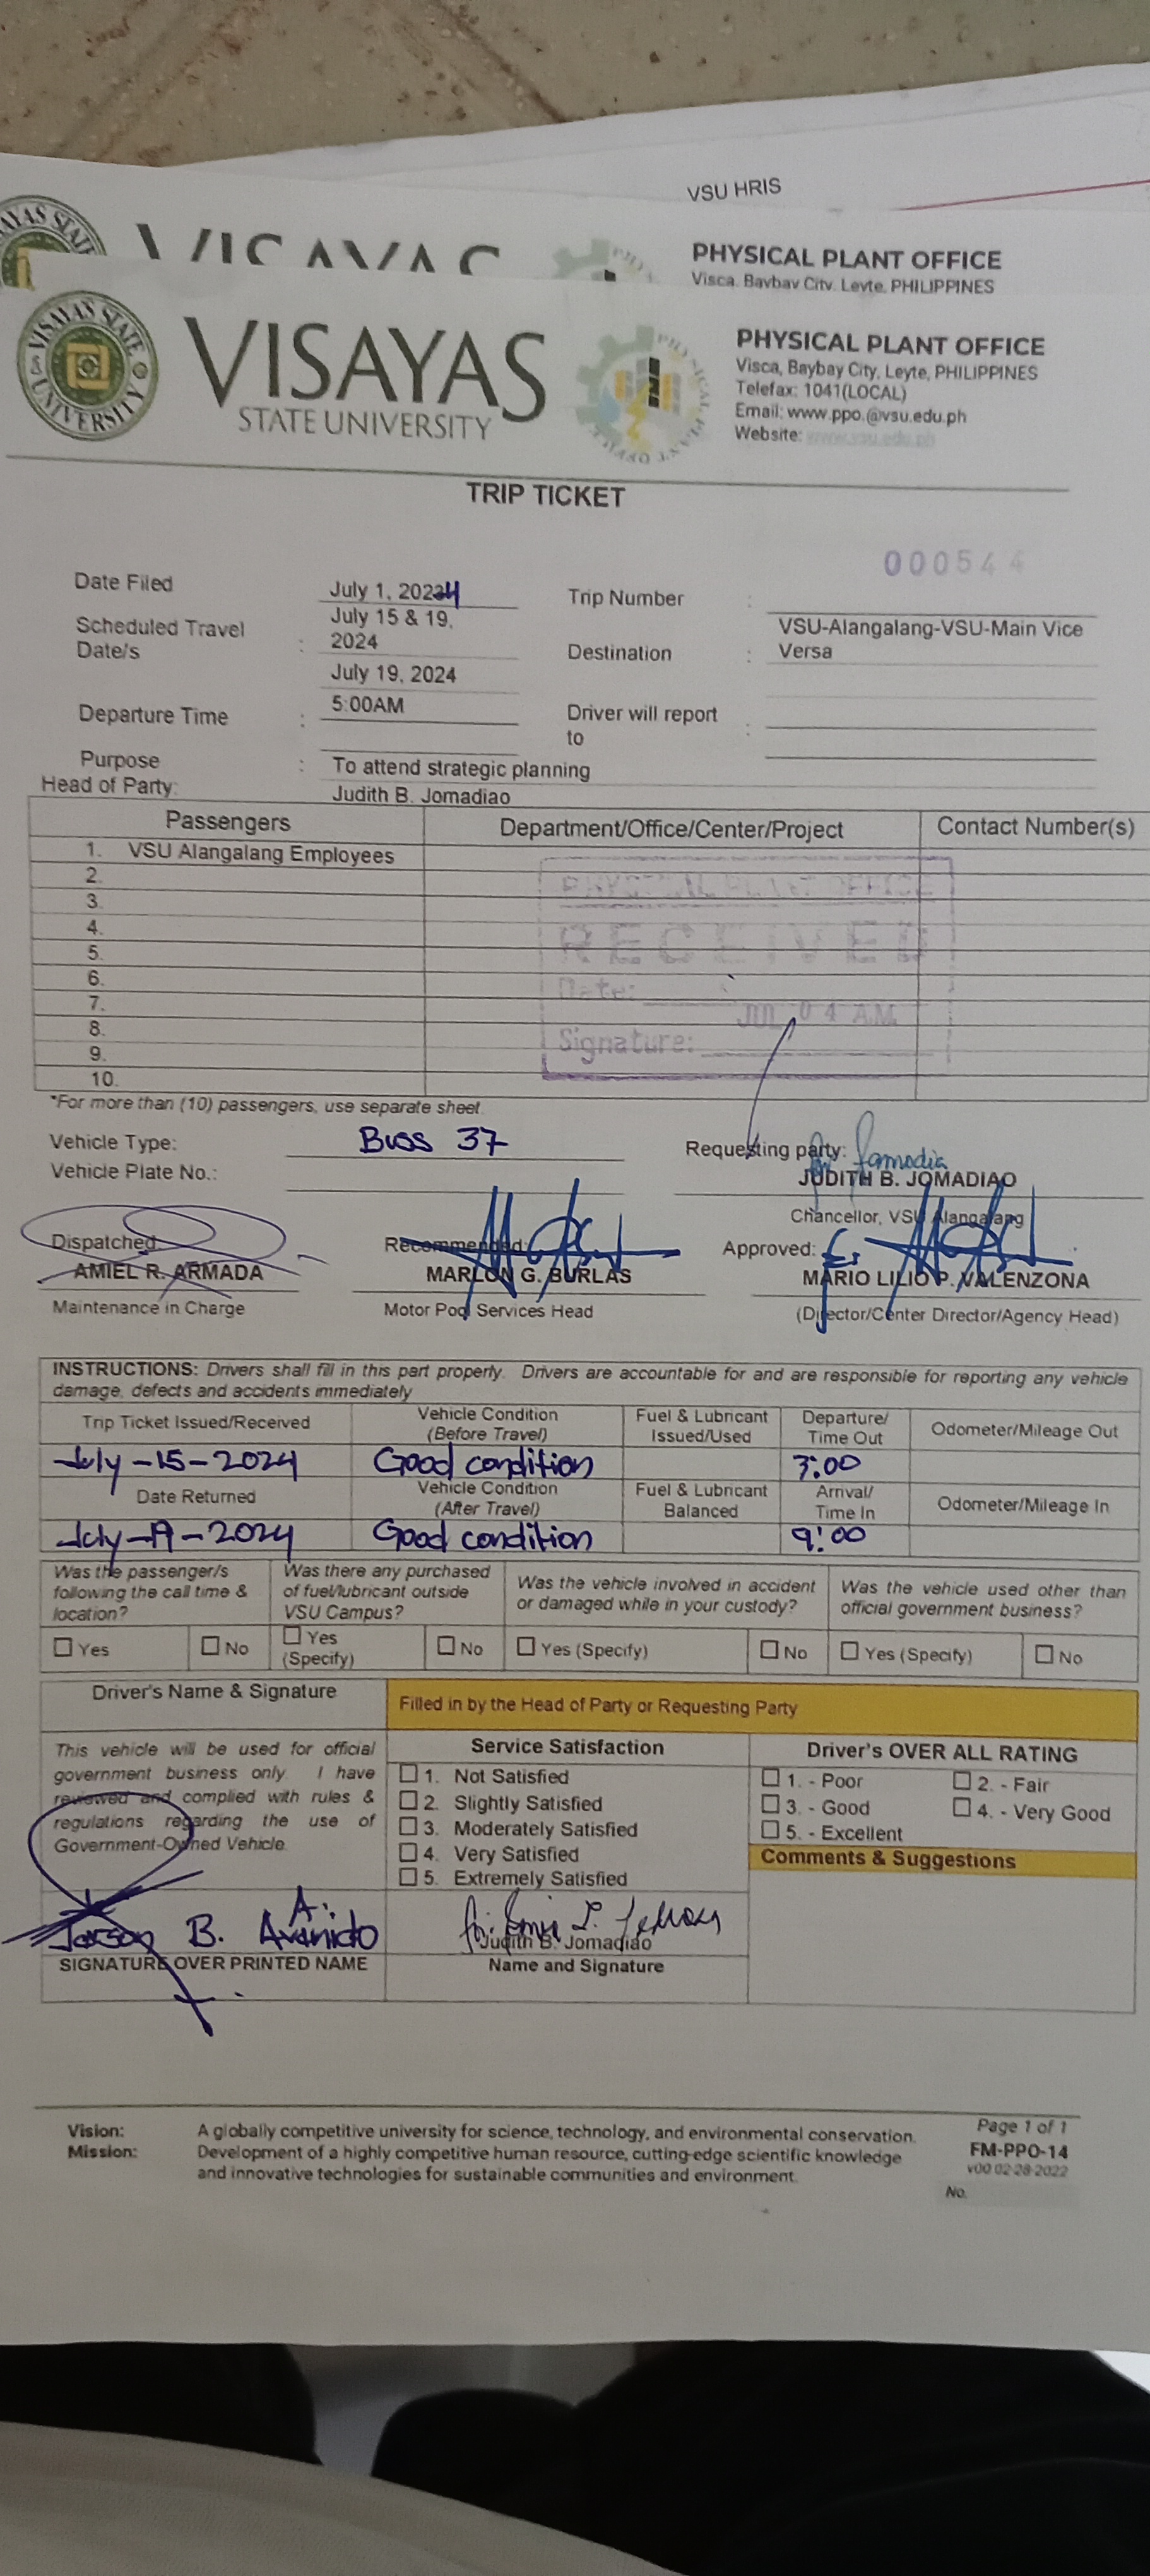 VSU HRIS
VISAYAS
PHYSICAL PLANT OFFICE
Visca, Baybay City, Leyte, PHILIPPINES
VISAYAS STATE UNIVERSITY
VISAYAS
STATE UNIVERSITY
PHYSICAL PLANT OFFICE
Visca, Baybay City, Leyte, PHILIPPINES
Telefax: 1041(LOCAL)
Email: www.ppo.@vsu.edu.ph
Website: www.vsu.edu.ph
TRIP TICKET
000544
Date Filed July 1, 2024 Trip Number :
Scheduled Travel Date/s : July 15 & 19, 2024 Destination : VSU-Alangalang-VSU-Main Vice Versa
July 19, 2024
Departure Time : 5:00AM Driver will report to :
Purpose : To attend strategic planning
Head of Party: Judith B. Jomadiao
Passengers Department/Office/Center/Project Contact Number(s)
1. VSU Alangalang Employees
2.
3.
4.
5.
6.
7.
8.
9.
10.
PHYSICAL PLANT OFFICE
RECEIVED
Date:
JUL 04 A.M.
Signature:
*For more than (10) passengers, use separate sheet.
Vehicle Type: Buss 37 Requesting party:
Vehicle Plate No.: JUDITH B. JOMADIAO
Chancellor, VSU Alangalang
Dispatched: Recommended: Approved:
AMIEL R. ARMADA MARLON G. BURLAS MARIO LILIO P. VALENZONA
Maintenance in Charge Motor Pool Services Head (Director/Center Director/Agency Head)
INSTRUCTIONS: Drivers shall fill in this part properly. Drivers are accountable for and are responsible for reporting any vehicle
damage, defects and accidents immediately
Trip Ticket Issued/Received Vehicle Condition (Before Travel) Fuel & Lubricant Issued/Used Departure/ Time Out Odometer/Mileage Out
July-15-2024 Good condition 3:00
Date Returned Vehicle Condition (After Travel) Fuel & Lubricant Balanced Arrival/ Time In Odometer/Mileage In
July-19-2024 Good condition 9:00
Was the passenger/s following the call time & location? Was there any purchased of fuel/lubricant outside VSU Campus? Was the vehicle involved in accident or damaged while in your custody? Was the vehicle used other than official government business?
Yes No Yes (Specify) No Yes (Specify) No Yes (Specify) No
Driver's Name & Signature Filled in by the Head of Party or Requesting Party
This vehicle will be used for official
government business only. I have
reviewed and complied with rules &
regulations regarding the use of
Government-Owned Vehicle.
Service Satisfaction
1. Not Satisfied
2. Slightly Satisfied
3. Moderately Satisfied
4. Very Satisfied
5. Extremely Satisfied
Driver's OVER ALL RATING
1. - Poor 2. - Fair
3. - Good 4. - Very Good
5. - Excellent
Comments & Suggestions
B. Avanido
Judith B. Jomadiao
SIGNATURE OVER PRINTED NAME Name and Signature
Vision: A globally competitive university for science, technology, and environmental conservation.
Mission: Development of a highly competitive human resource, cutting-edge scientific knowledge
and innovative technologies for sustainable communities and environment.
Page 1 of 1
FM-PPO-14
v00 02-28-2022
No.